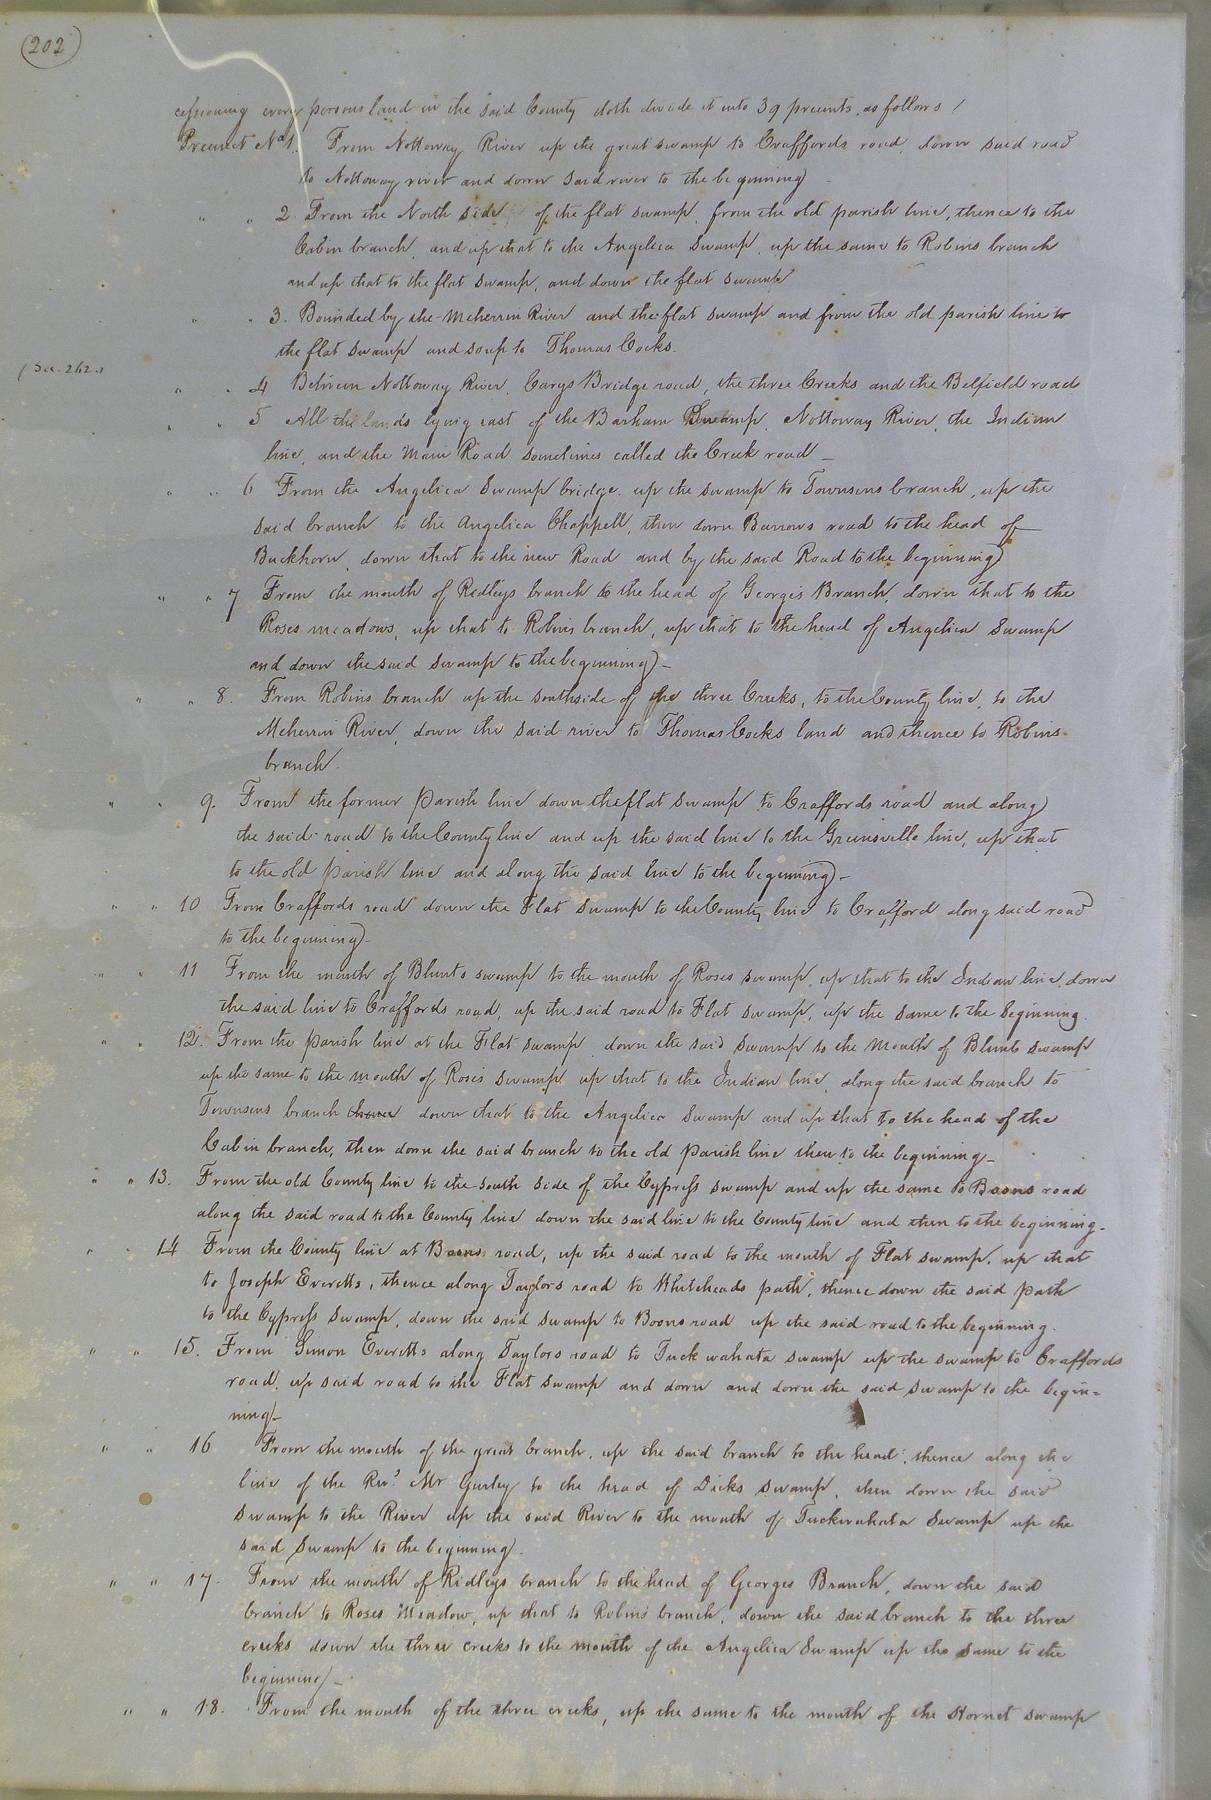 (202)
cessioning every persons land in the said County doth divide it into 39 precints, as follows /
Precinct No 1. From Nottoway River up the great swamp to Craffords road, down said road
to Nottoway river and down said river to the beginning
" " 2. From the North side of the flat swamp, from the old parish line, thence to the
Cabin branch, and up that to the Angelica Swamp, up the same to Robins branch
and up that to the flat swamp, and down the flat swamp
" " 3. Bounded by the Meherrin River and the flat swamp and from the old parish line to
the flat swamp and so up to Thomas Cocks.
(See. 262.)
" " 4 Between Nottoway River, Carys Bridge road, the three Creeks and the Belfield road
" " 5 All the lands lying east of the Barham Swamp, Nottoway River, the Indian
line, and the Main Road sometimes called the Creek road _
" " 6 From the Angelica Swamp bridge, up the swamp to Townsens branch, up the
said branch to the Angelica Chappell, then down Barrows road to the head of
Buckhorn, down that to the new Road and by the said Road to the beginning
" " 7 From the mouth of Ridleys branch to the head of Georges Branch, down that to the
Roses meadows, up that to Robins branch, up that to the head of Angelica Swamp
and down the said swamp to the beginning _
" " 8. From Robins branch up the southside of the three Creeks, to the County line, to the
Meherrin River, down the said river to Thomas Cocks land and thence to Robins
branch.
" " 9. From the former Parish line down the flat swamp to Craffords road and along
the said road to the County line and up the said line to the Greensville line, up that
to the old parish line and along the said line to the beginning _
" " 10 From Craffords road down the Flat swamp to the County line to Crafford along said road
to the beginning _
" " 11 From the mouth of Blunts swamp to the mouth of Roses swamp, up that to the Indian line, down
the said line to Craffords road, up the said road to Flat swamp, up the same to the beginning.
" " 12. From the parish line at the Flat swamp down the said swamp to the mouth of Blunts swamp
up the same to the mouth of Roses swamp up that to the Indian line, along the said branch to
Townsens branch down that to the Angelica Swamp and up that to the head of the
Cabin branch, then down the said branch to the old parish line then to the beginning _
" " 13. From the old County line to the south side of the Cypress swamp and up the same to Boons road
along the said road to the County line down the said line to the County line and then to the beginning _
" " 14 From the County line at Boons road, up the said road to the mouth of Flat swamp, up that
to Joseph Everetts, thence along Taylors road to Whiteheads path, thence down the said path
to the Cypress swamp, down the said swamp to Boons road up the said road to the beginning.
" " 15. From Simon Everetts along Taylors road to Tuckwahata swamp up the swamp to Craffords
road, up said road to the Flat swamp and down and down the said swamp to the begin=
ning _
" " 16 From the mouth of the great branch, up the said branch to the head, thence along the
line of the Revd. Mr Gurley to the head of Dicks swamp, then down the said
swamp to the River up the said River to the mouth of Tuckwahata Swamp up the
said Swamp to the beginning.
" " 17. From the mouth of Ridleys branch to the head of Georges Branch, down the said
branch to Roses Meadow, up that to Robins branch, down the said branch to the three
creeks down the three creeks to the mouth of the Angelica Swamp up the same to the
beginning _
" " 18. From the mouth of the three creeks, up the same to the mouth of the Hornet swamp